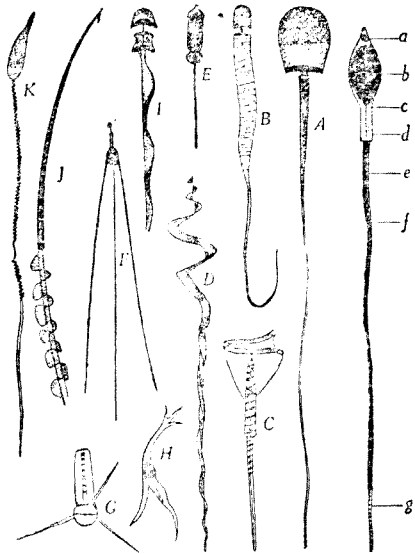 K
J
I
E
B
A
a
b
c
d
e
f
F
D
C
H
G
g